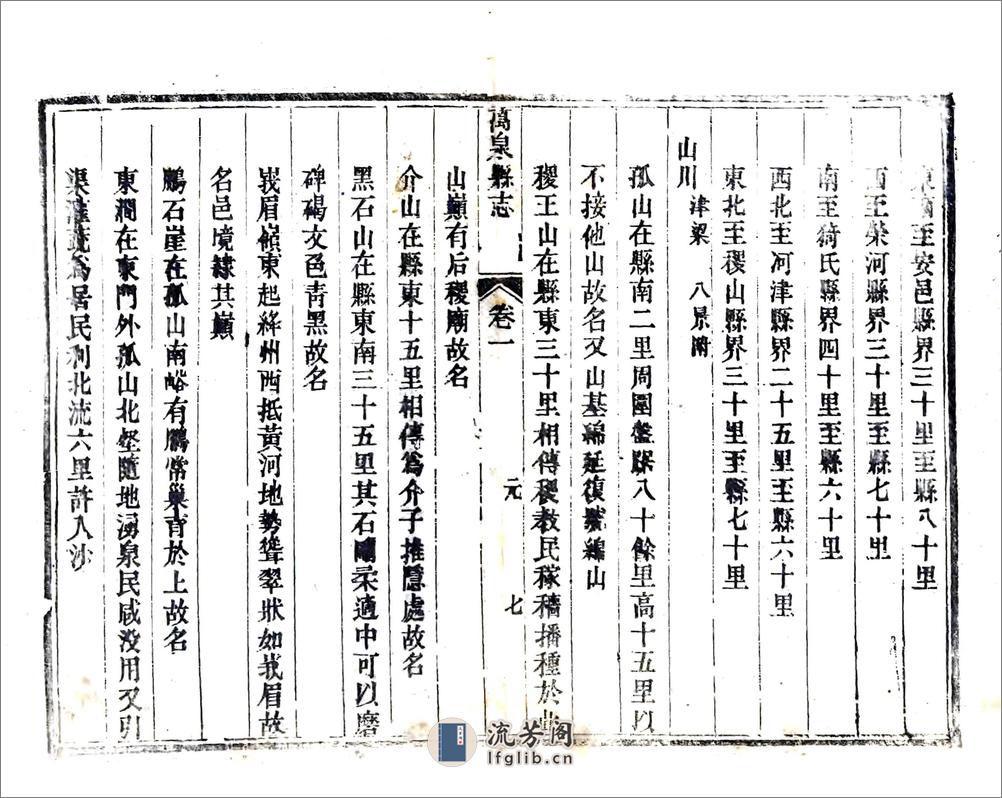 東南至安邑縣界三十里至縣八十里
西至榮河縣界三十里至縣七十里
南至猗氏縣界四十里至縣六十里
西北至河津縣界二十五里至縣六十里
東北至稷山縣界三十里至縣七十里
山川 津梁 八景附
孤山在縣南二里周圍盤踞八十餘里高十五里以
不接他山故名又山基綿延復號綿山
稷王山在縣東三十里相傳稷教民稼穡播種於此
萬泉縣志 卷一 元 七
山巔有后稷廟故名
介山在縣東十五里相傳為介子推隱處故名
黑石山在縣東南三十五里其石剛柔適中可以磨
碑碣文色青黑故名
峩眉嶺東起絳州西抵黃河地勢聳翠狀如峩眉故
名邑境隸其巔
鵰石崖在孤山南峪有鵰常巢育於上故名
東澗在東門外孤山北壑隨地湧泉民咸汲用又引
渠灌蔬為居民利北流六里許入沙
流芳阁
lfglib.cn